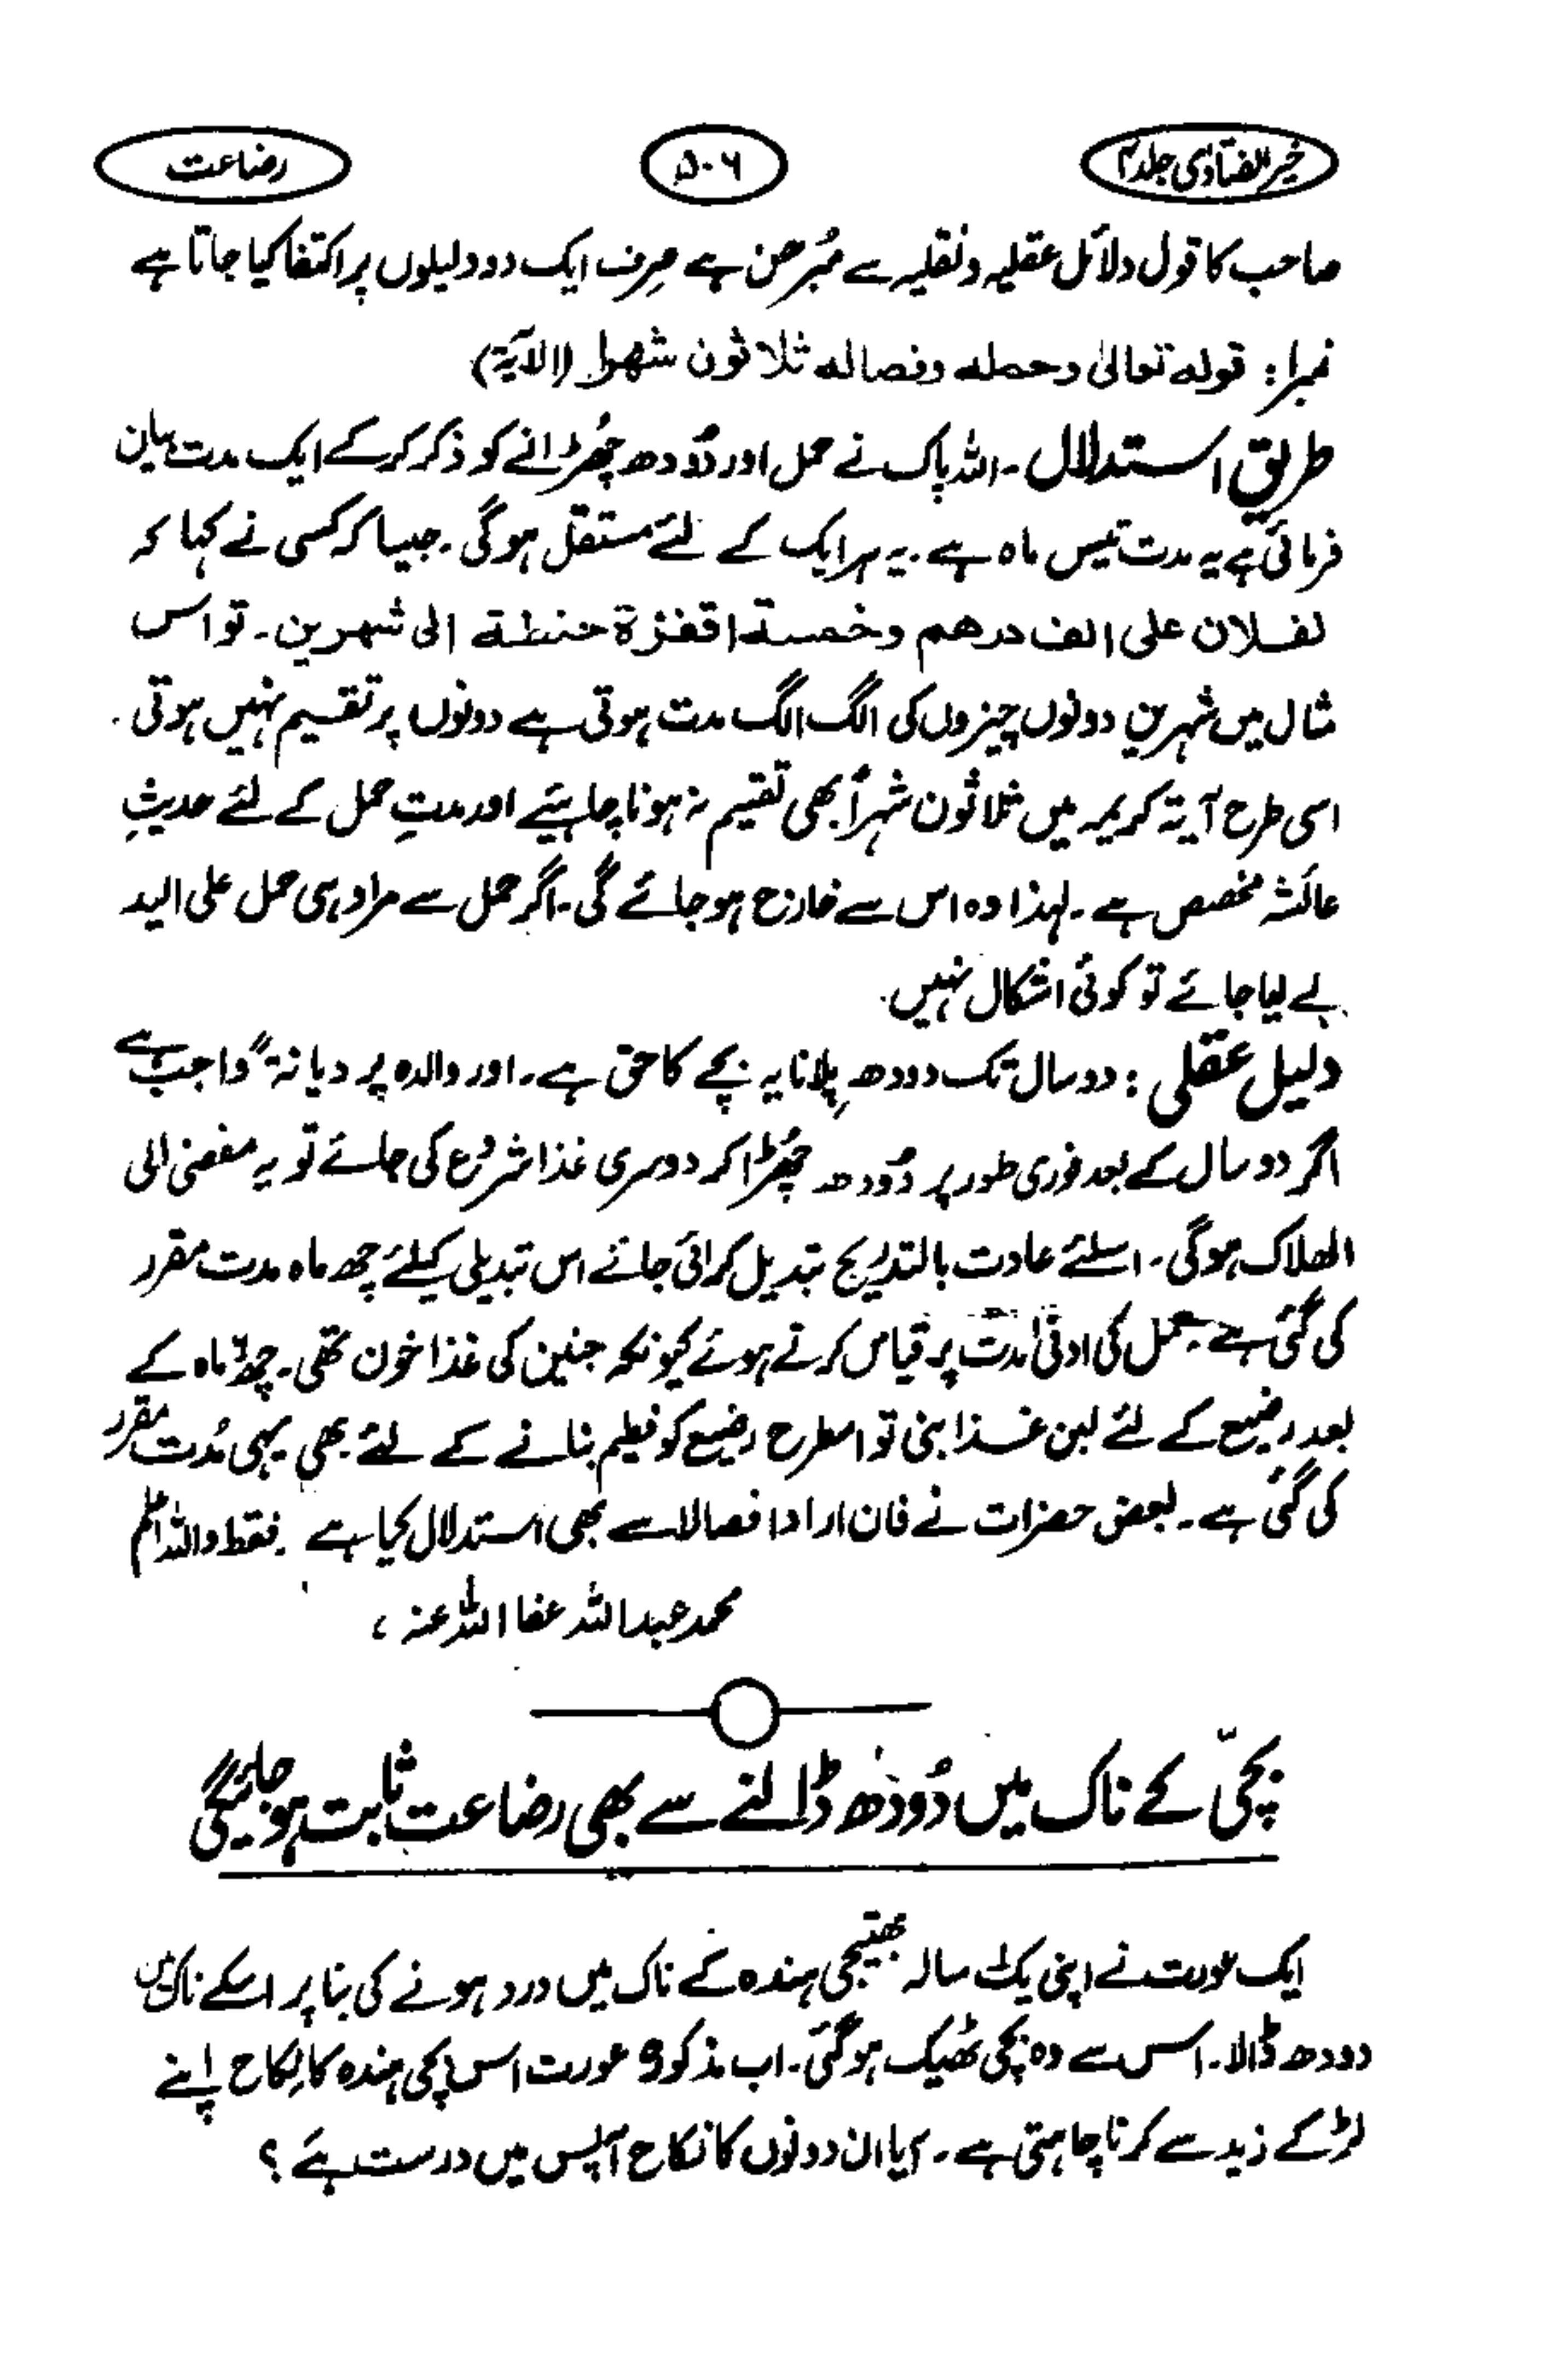 خیر الفتاویٰ جلد ۴
۵۰۶
رضاعت
صاحب کا قول دلائل عقلیہ و نقلیہ سے مُبرھن ہے صِرف ایک دو دلیلوں پر اکتفا کیا جاتا ہے
نمبرا: قوله تعالیٰ وحمله وفصاله ثلاثون شهرا (الآیة)
طریق استدلال ۔ اللہ پاک نے حمل اور دُودھ چھُڑانے کو ذکر کر کے ایک مدت بیان
فرمائی ہے یہ مدت تیس ماہ ہے ۔ یہ ہر ایک کے لئے مستقل ہوگی ۔ جیسا کہ کسی نے کہا کہ
لفلان علی الف درهم وخمسة اقفزة حنطة الی شهرین ۔ تو اس
مثال میں شہرین دونوں چیزوں کی الگ الگ مدت ہوتی ہے دونوں پر تقسیم نہیں ہوتی ۔
اسی طرح آیۃ کریمہ میں ثلاثون شہراً بھی تقسیم نہ ہونا چاہیئے اور مدتِ حمل کے لئے حدیثِ
عائشہ مخصص ہے ۔ لہذا وہ اس سے خارج ہو جائے گی ۔ اگر حمل سے مراد ہی حمل علی الید
لے لیا جائے تو کوئی اشکال نہیں ۔
دلیل عقلی : دو سال تک دودھ پِلانا یہ بچے کا حق ہے ۔ اور والدہ پر دیانۃً واجب ہے
اگر دو سال کے بعد فوری طور پر دُودھ چھُڑا کر دوسری غذا شروع کی جائے تو یہ مفضی الی
الھلاک ہوگی ۔ اسلئے عادت بالتدریج تبدیل کرائی جائے اس تبدیلی کیلئے چھ ماہ مدت مقرر
کی گئی ہے ۔ حمل کی ادنیٰ مُدت پر قیاس کرتے ہوئے کیونکہ جنین کی غذا خون تھی ۔ چھ ماہ کے
بعد رضیع کے لئے لبن غذا بنی تو اسطرح رضیع کو فطیم بنانے کے لئے بھی یہی مُدت مقرر
کی گئی ہے ۔ بعض حضرات نے فان ارادا فصالا سے بھی استدلال کیا ہے ۔ فقط واللہ اعلم
محمد عبد اللہ عفا اللہ عنہ ،
بچّی کے ناک میں دُودھ ڈالنے سے بھی رضاعت ثابت ہو جائیگی
ایک عورت نے اپنی یک سالہ بھتیجی ہندہ کے ناک میں درد ہونے کی بنا پر اسکے ناک میں
دودھ ڈالا ۔ اس سے وہ بچی ٹھیک ہوگئی ۔ اب مذکورہ عورت اس بچی ہندہ کا نِکاح اپنے
لڑکے زید سے کرنا چاہتی ہے ۔ کیا ان دونوں کا نکاح آپس میں درست ہے ؟